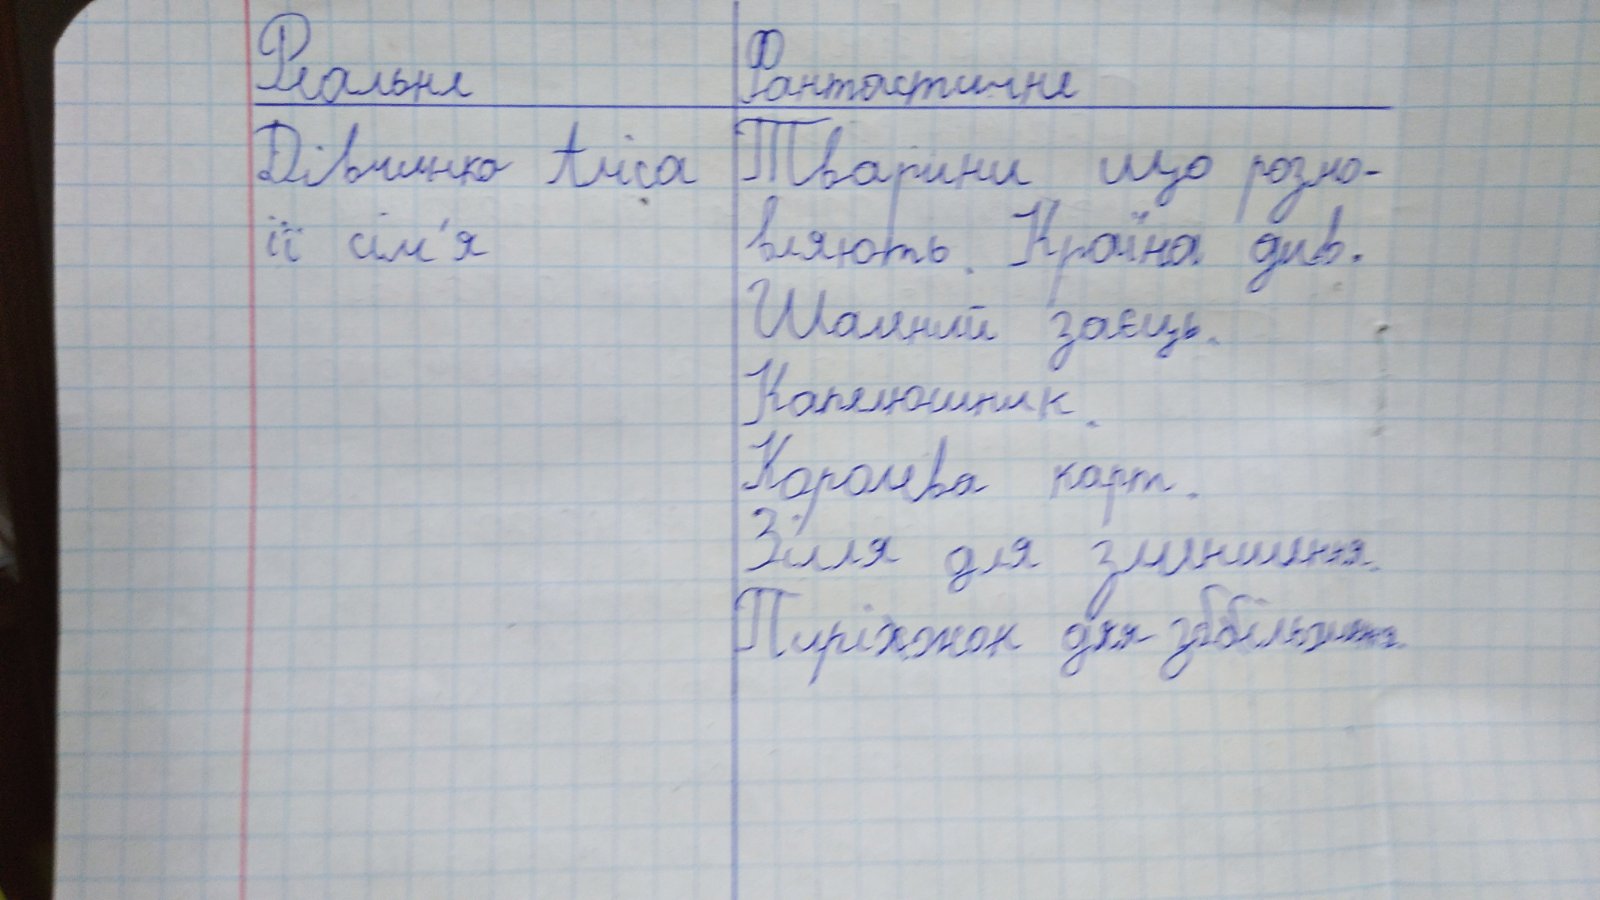 Реальне Фантастичне
Дівчинка Аліса Тварини що розмо-
її сім'я вляють. Країна див.
Шалений заєць.
Капелюшник.
Королева карт.
Зілля для зменшення.
Пиріжок для збільшення.